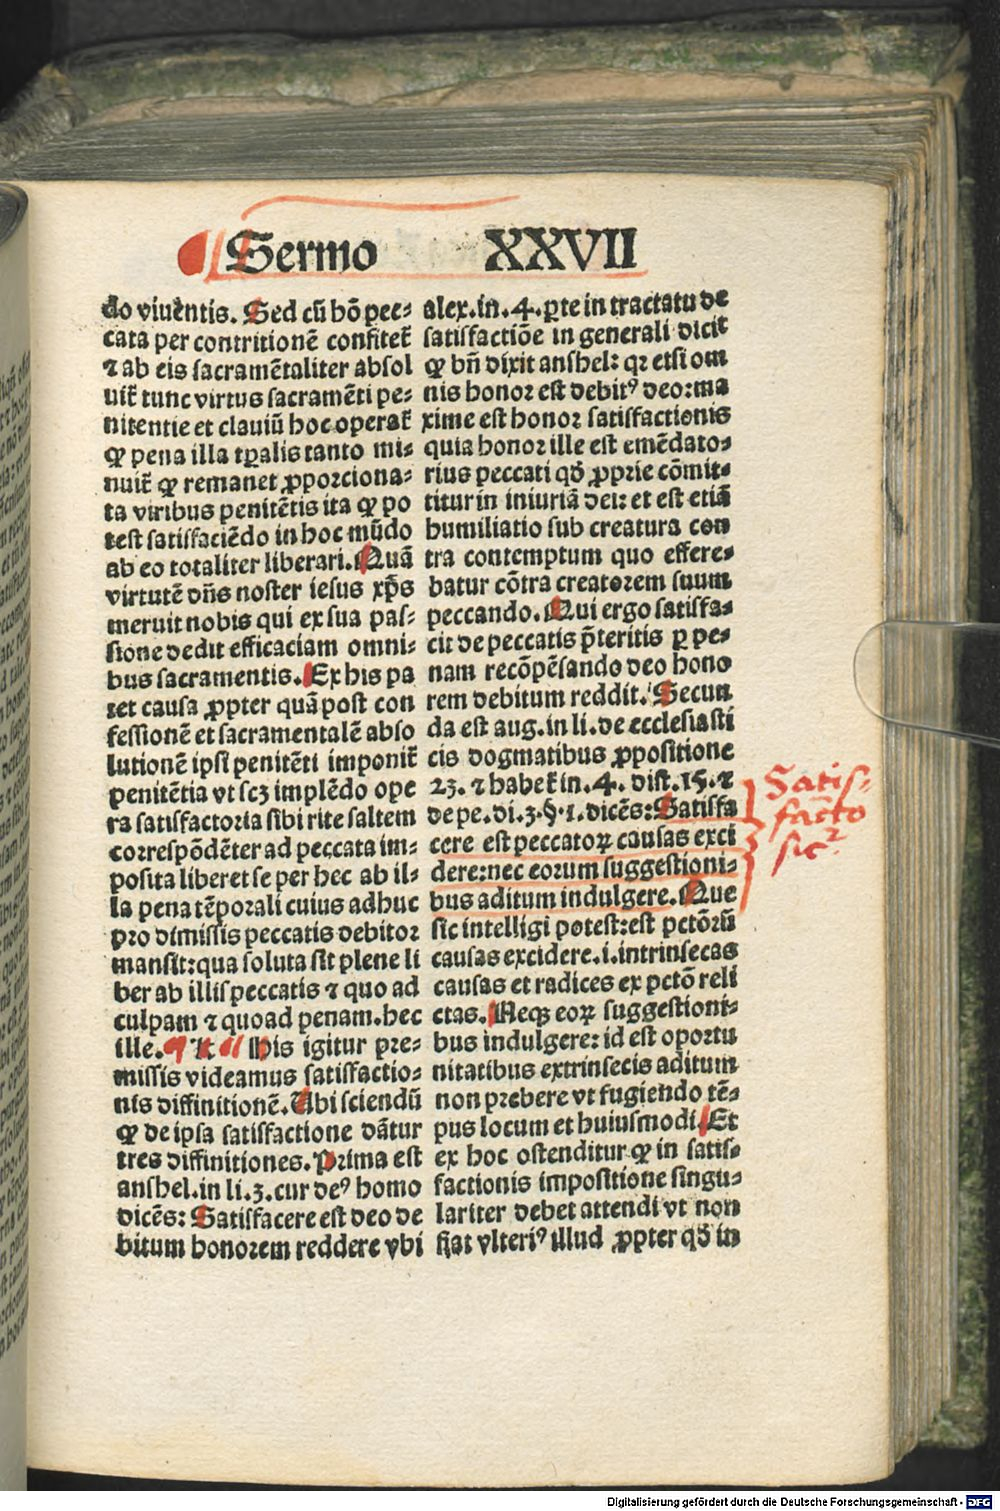 Sermo XXVII
do viuētis. Sed cū hō pec⸗
cata per contritionē confitet̄
⁊ ab eis sacramētaliter absol
uit̄ tunc virtus sacramēti pe⸗
nitentie et clauiū hoc operat̄
ꝙ pena illa tꝑalis tanto mi⸗
nuit̄ ꝙ remanet ꝓporciona⸗
ta viribus penitētis ita ꝙ po
test satisfaciēdo in hoc mūdo
ab eo totaliter liberari. Quā
virtutē dn̄s noster iesus xp̄s
meruit nobis qui ex sua pas⸗
sione dedit efficaciam omni⸗
bus sacramentis. Ex his pa
tet causa ꝓpter quā post con
fessionē et sacramentalē abso
lutionē ipsi penitēti imponit̄
penitētia vt scꝫ implēdo ope
ra satisfactoria sibi rite saltem
correspōdēter ad peccata im⸗
posita liberet se per hec ab il⸗
la pena tēporali cuius adhuc
pro dimissis peccatis debitor
mansit: qua soluta sit plene li
ber ab illis peccatis ⁊ quo ad
culpam ⁊ quoad penam. hec
ille. ¶ K ¶ His igitur pre⸗
missis videamus satisfactio⸗
nis diffinitionē. Ubi sciendū
ꝙ de ipsa satisfactione dātur
tres diffinitiones. Prima est
anshel. in li. 3. cur deꝰ homo
dicēs: Satisfacere est deo de
bitum honorem reddere vbi
alex. in. 4. ꝑte in tractatu de
satisfactiōe in generali dicit
ꝙ bn̄ dixit anshel: qꝛ etsi om
nis honor est debitꝰ deo: ma
xime est honor satisfactionis
quia honor ille est emēdato⸗
rius peccati qd̄ ꝓprie cōmit⸗
titur in iniuriā dei: et est etiā
humiliatio sub creatura con
tra contemptum quo effere⸗
batur cōtra creatorem suum
peccando. Qui ergo satisfa⸗
cit de peccatis p̄teritis ꝑ pe⸗
nam recōpēsando deo hono
rem debitum reddit. Secun
da est aug. in li. de ecclesiasti
cis dogmatibus ꝓpositione
23. ⁊ habet̄ in. 4. dist. 15. ⁊
de pe. di. 3. §. 1. dicēs: Satisfa
cere est peccatoꝝ causas exci
dere: nec eorum suggestioni⸗
bus aditum indulgere. Que
sic intelligi potest: est pctōrū
causas excidere. i. intrinsecas
causas et radices ex pctō reli
ctas. Neqꝫ eoꝝ suggestioni⸗
bus indulgere: id est oportu
nitatibus extrinsecis aditum
non prebere vt fugiendo tē⸗
pus locum et huiusmodi. Et
ex hoc ostenditur ꝙ in satis⸗
factionis impositione singu⸗
lariter debet attendi vt non
fiat vlteriꝰ illud ꝓpter qd̄ in
Satis⸗
factio
Digitalisierung gefördert durch die Deutsche Forschungsgemeinschaft - DFG